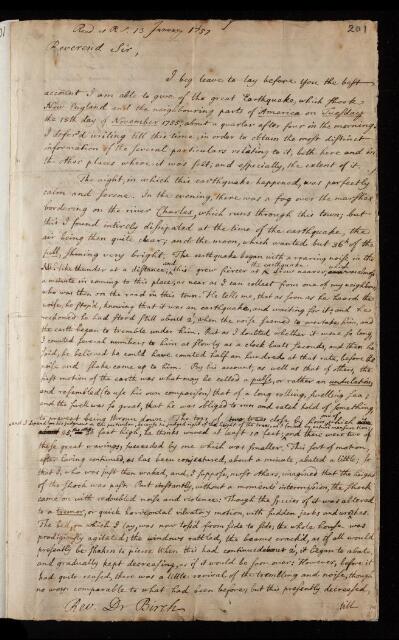 Read at R.S. 13 January 1757
201
Reverend Sir,
I beg leave to lay before you the best
account I am able to give of the great Earthquake, which shook
New England and the neighbouring parts of America on Tuesday
the 18th day of November 1755, about a quarter after four in the morning.
I deferr'd writing till this time, in order to obtain the most distinct
information of the several particulars relating to it, both here and in
the other places where it was felt; and especially, the extent of it.
The night, in which this earthquake happened, was perfectly
calm and serene. In the evening, there was a fog over the marshes
bordering on the river Charles, which runs through this town; but
this I found intirely dissipated at the time of the earthquake, the
air being then quite clear; and the moon, which wanted but 36h of the
full, shining very bright. The earthquake began with a roaring noise in the
NW like thunder at a distance; this grew fiercer as the earthquake drew nearer,
a minute in coming to this place; as near as I can collect from one of my neighbours
who was then on the road in this town. He tells me, that as soon as he heard the
noise, he stop'd, knowing that it was an earthquake, and waiting for it; and he
reckoned he had stood still about 2', when the noise seemed to overtake him, and
the earth began to tremble under him. But as I doubted whether it were so long,
I counted several numbers to him as slowly as a clock beats seconds, and then he
said, he believed he could have counted half an hundred at that rate, before the
noise and shake came up to him. By his account, as well as that of others, the
first motion of the earth was what may be called a pulse, or rather an undulation;
and resembled (to use his own comparison) that of a long rolling, swelling sea;
and the swell was so great, that he was obliged to run and catch hold of something,
to prevent being thrown down. The tops of two trees close by him, which
25, feet high, he thinks waved at least 10 feet; and there were two of
these great wavings, succeeded by one which was smaller. This sort of motion,
after having continued, as has been conjectured, about a minute, abated a little; so
that I, who was just then waked, and, I suppose, most others, imagined that the height
of the shock was past. But instantly, without a moment's intermission, the shock
came on with redoubled noise and violence; Though the species of it was altered
to a tremor, or quick horizontal vibratory motion, with sudden jerks and wrenches.
The bed, on which I lay, was now tossed from side to side; the whole house was
prodigiously agitated; the windows rattled, the beams cracked, as if all would
presently be shaken to pieces. When this had continued about 2', it began to abate,
and gradually kept decreasing, as if it would be soon over; However, before it
had quite ceased, there was a little revival of the trembling and noise, though
no ways comparable to what had been before; but this presently decreased,
till
Rev. Dr Birch